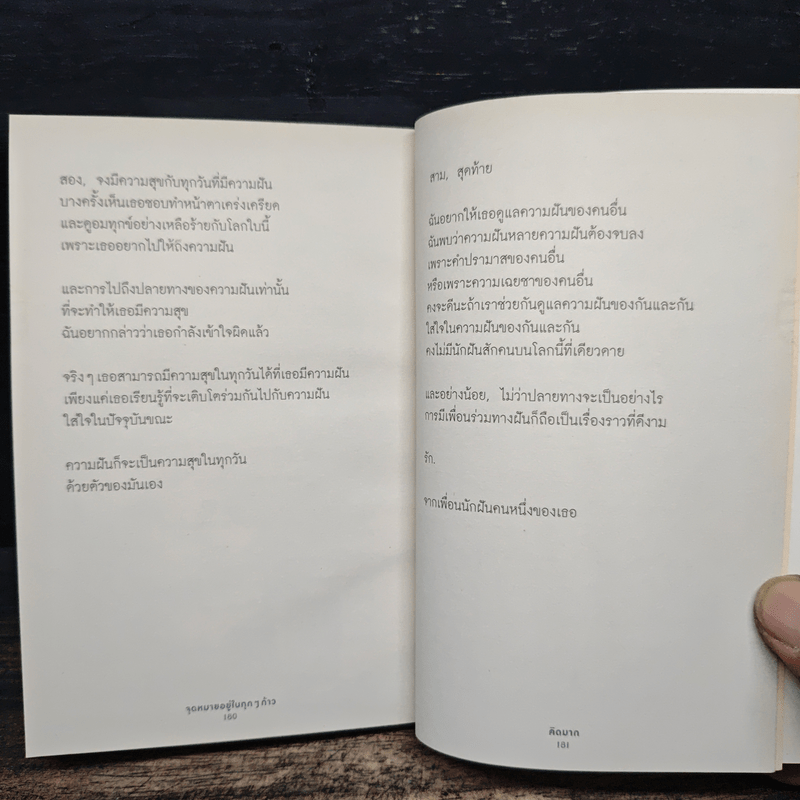 สอง, จงมีความสุขกับทุกวันที่มีความฝัน
บางครั้งเห็นเธอชอบทำหน้าตาเคร่งเครียด
และดูอมทุกข์อย่างเหลือร้ายกับโลกใบนี้
เพราะเธออยากไปให้ถึงความฝัน
และการไปถึงปลายทางของความฝันเท่านั้น
ที่จะทำให้เธอมีความสุข
ฉันอยากกล่าวว่าเธอกำลังเข้าใจผิดแล้ว
จริงๆ เธอสามารถมีความสุขในทุกวันได้ที่เธอมีความฝัน
เพียงแค่เธอเรียนรู้ที่จะเติบโตร่วมกันไปกับความฝัน
ใส่ใจในปัจจุบันขณะ
ความฝันก็จะเป็นความสุขในทุกวัน
ด้วยตัวของมันเอง
จุดหมายอยู่ในทุกๆ ก้าว
180
สาม, สุดท้าย
ฉันอยากให้เธอดูแลความฝันของคนอื่น
ฉันพบว่าความฝันหลายความฝันต้องจบลง
เพราะคำปรามาสของคนอื่น
หรือเพราะความเฉยชาของคนอื่น
คงจะดีนะถ้าเราช่วยกันดูแลความฝันของกันและกัน
ใส่ใจในความฝันของกันและกัน
คงไม่มีนักฝันสักคนบนโลกนี้ที่เดียวดาย
และอย่างน้อย, ไม่ว่าปลายทางจะเป็นอย่างไร
การมีเพื่อนร่วมทางฝันก็ถือเป็นเรื่องราวที่ดีงาม
รัก.
จากเพื่อนนักฝันคนหนึ่งของเธอ
คิดมาก
181